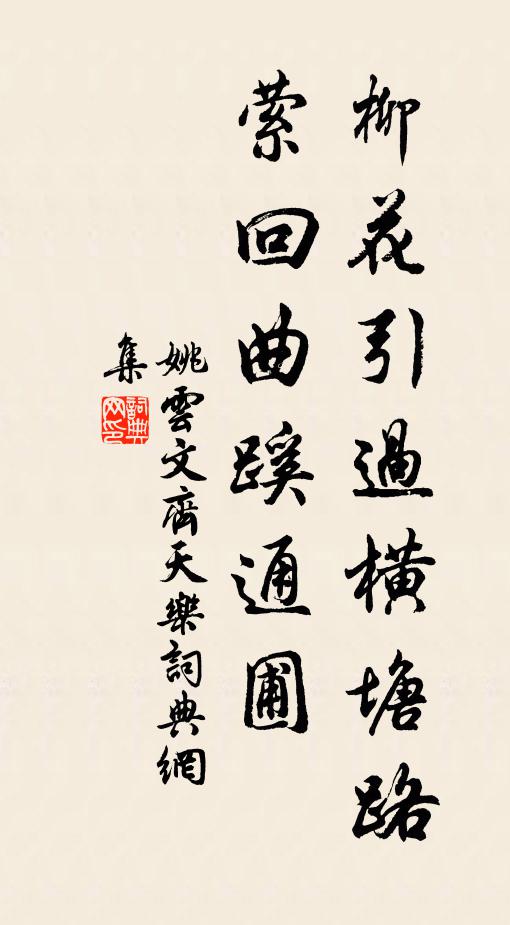 柳花引過橫塘路
萦回曲蹊通圃
姚雲文齊天樂詞典網
集
詞典
网印